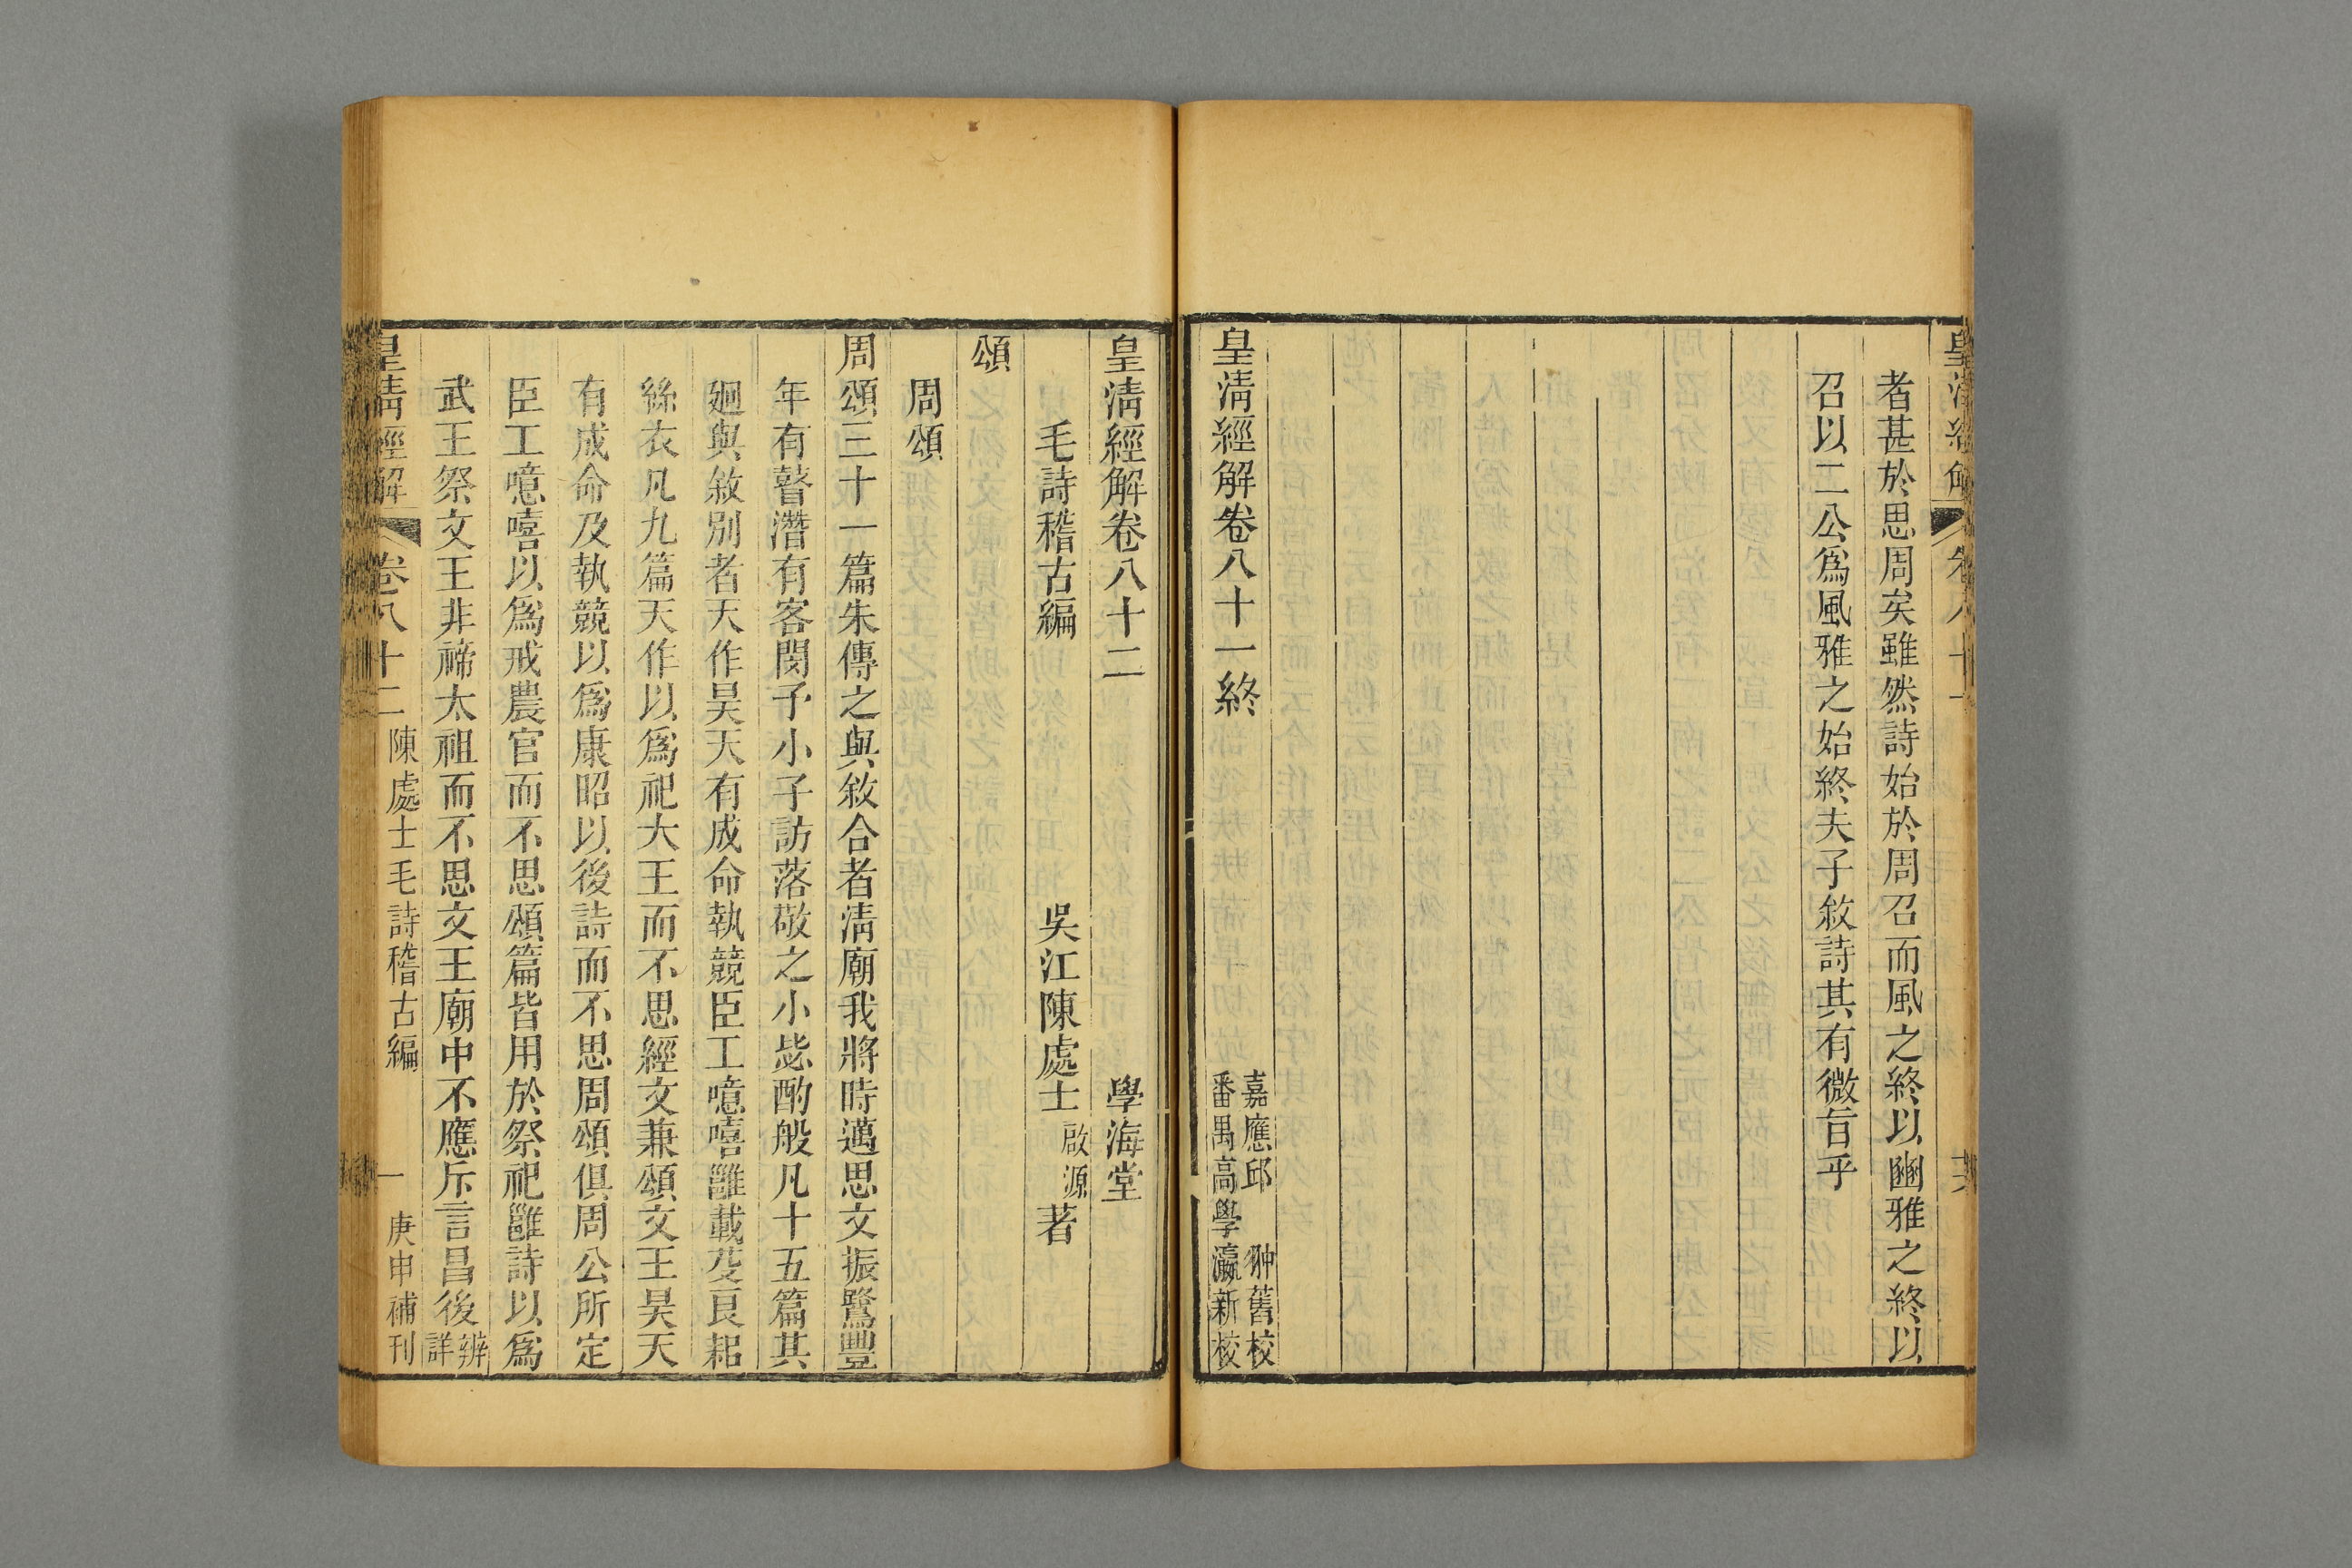 皇清經解
卷八十一
者甚於思周矣雖然詩始於周召而風之終以豳雅之終以
召以二公爲風雅之始終夫子敘詩其有微旨乎
皇清經解卷八十一終
嘉應邱翀舊校
番禺高學瀛新校
皇清經解卷八十二 學海堂
毛詩稽古編 吳江陳處士啟源著
頌
周頌
周頌三十一篇朱傳之與敘合者淸廟我將時邁思文振鷺豐
年有瞽濳有客閔予小子訪落敬之小毖酌般凡十五篇其
廻與敘別者天作昊天有成命執競臣工噫嘻雝載芟良耜
絲衣凡九篇天作以爲祀大王而不思經文兼頌文王昊天
有成命及執競以爲康昭以後詩而不思周頌俱周公所定
臣工噫嘻以爲戒農官而不思頌篇皆用於祭祀雝詩以爲
武王祭文王非禘太祖而不思文王廟中不應斥言昌後辨詳
皇清經解 卷八十二 陳處士毛詩稽古編 一 庚申補刊